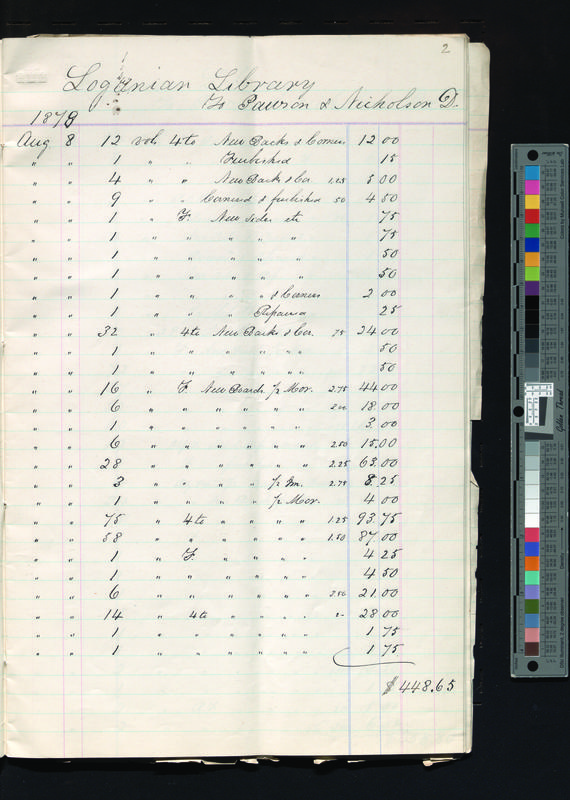 2
Loganian Library
To Pawson & Nicholson D.
1878
Aug 8 12 vols 4to New Backs & Corners 12 00
" " 1 " " Furbished 15
" " 4 " " New Back & Cor. 1.25 5 00
" " 9 " " Cornered & furbished 50 4 50
" " 1 " F. New sides etc 75
" " 1 " " " " " 75
" " 1 " " " " " 50
" " 1 " " " " " 50
" " 1 " " " " & Corners 2 00
" " 1 " " " Repaired 25
" " 32 " 4to New Backs & Cor. 75 24 00
" " 1 " " " " " " 50
" " 1 " " " " " " 50
" " 16 " F. New Boards ½ Mor. 2.75 44 00
" " 6 " " " " " " 18.00
" " 1 " " " " " " 3.00
" " 6 " " " " " " 2.50 15.00
" " 28 " " " " " " 2.25 63.00
" " 3 " " " " ½ 2.75 8.25
" " 1 " " " " ½ Mor. 4 00
" " 75 " 4to " " " " 1.25 93.75
" " 58 " " " " " " 1.50 87.00
" " 1 " F. " " " " 4 25
" " 1 " " " " " " 4 50
" " 6 " " " " " " 21.00
" " 14 " 4to " " " " 2- 28 00
" " 1 " " " " " " 1 75
" " 1 " " " " " " 1 75
$ 448.65
Golden Thread